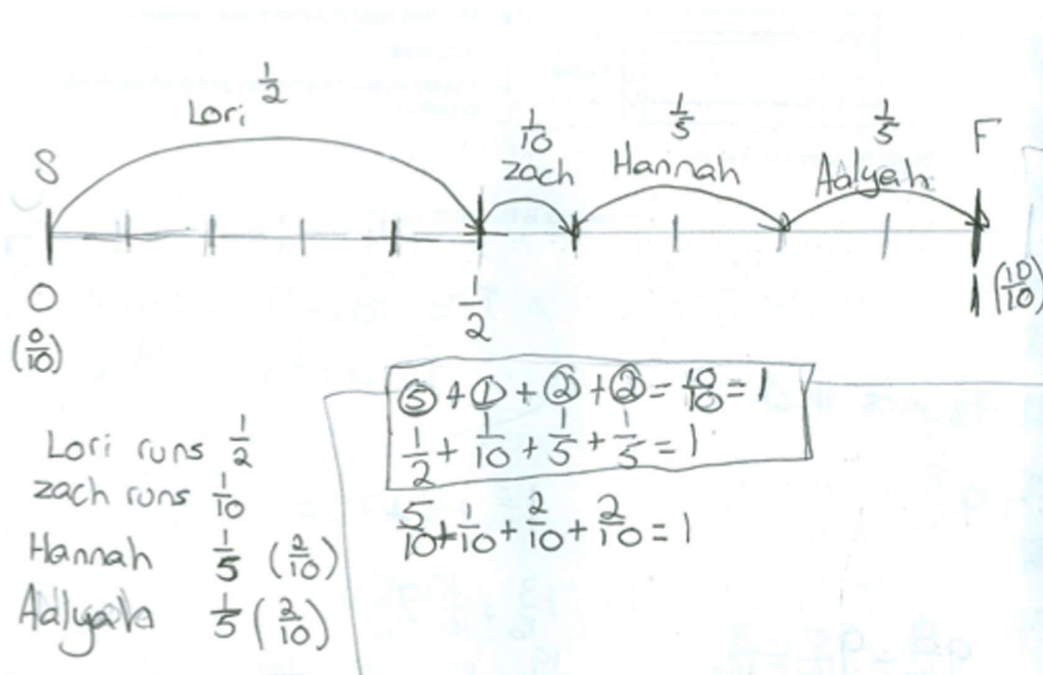 1/2
Lori
1/10 1/5 1/5
S zach Hannah Aalyah F
0 1/2 1 (10/10)
(0/10)
5 + 1 + 2 + 2 = 10/10 = 1
1/2 + 1/10 + 1/5 + 1/5 = 1
5/10 + 1/10 + 2/10 + 2/10 = 1
Lori runs 1/2
zach runs 1/10
Hannah 1/5 (2/10)
Aalyah 1/5 (2/10)